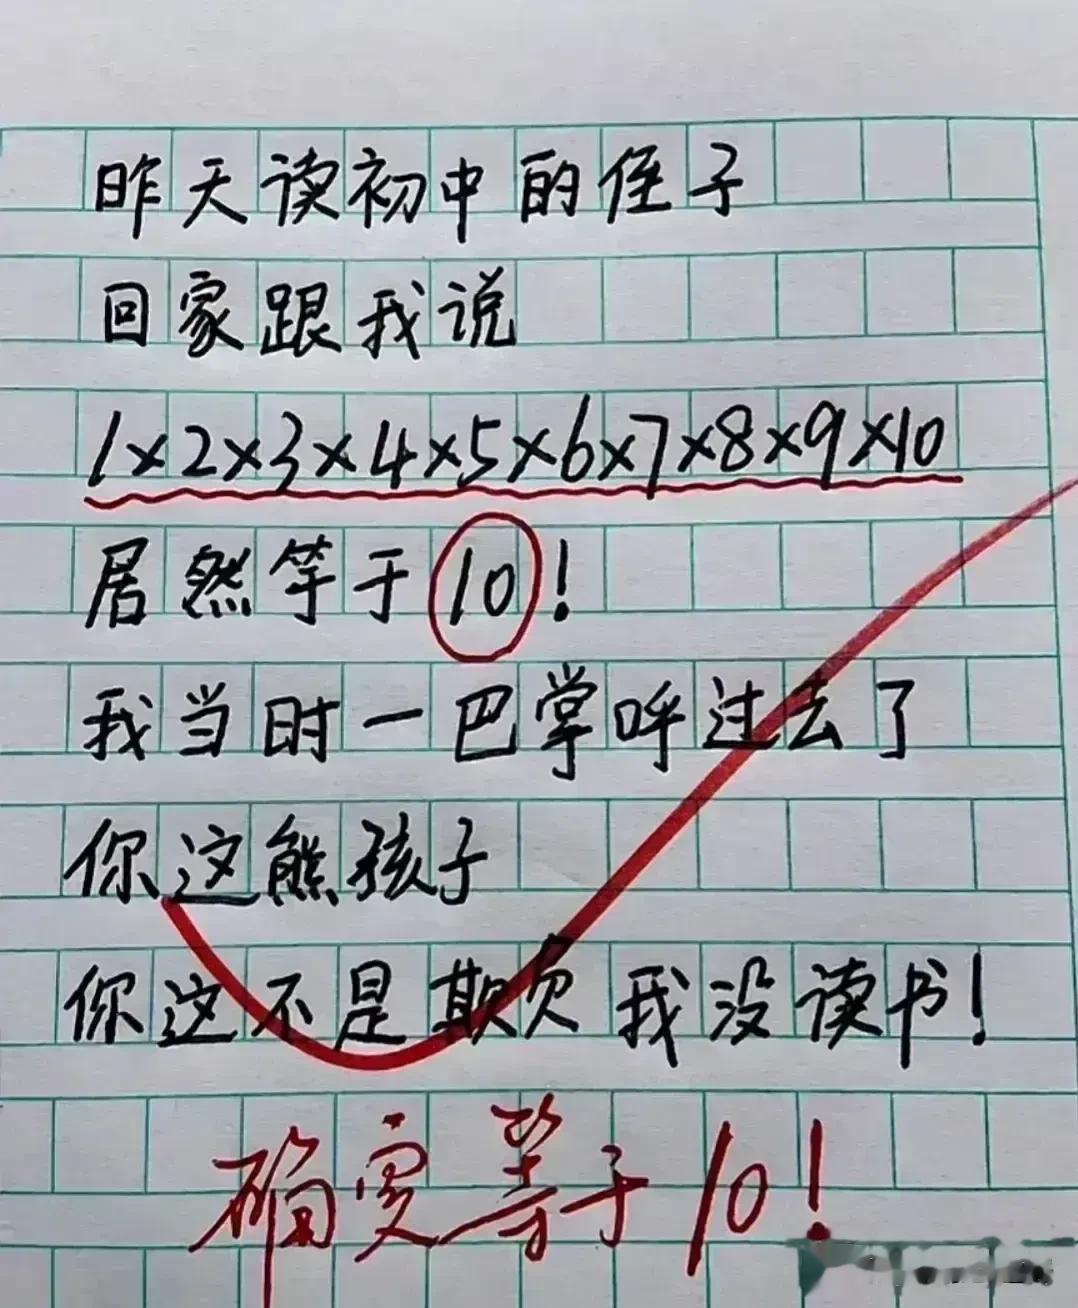 昨天读初中的侄子
回家跟我说
1×2×3×4×5×6×7×8×9×10
居然等于10!
我当时一巴掌呼过去了
你这熊孩子
你这不是欺欠我没读书!
确实等于10!